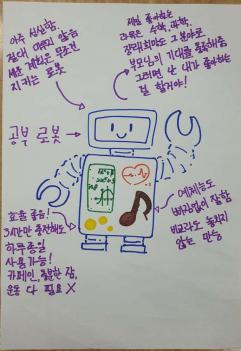 아주 성실함.
절대 미루지 않음
세운 계획은 무조건
지키는 로봇
제일 좋아하는
과목은 수학, 과학.
장래희망도 그 분야로
부모님의 기대를 충족해줌
그러면 난 내가 좋아하는
걸 할거야!
공부 로봇
효율 좋음!
3시간만 충전해도
하루종일
사용가능!
카페인, 충분한 잠,
운동 다 필요 X
예체능도
빠짐없이 잘함
비교과도 놓치지
않는 만능